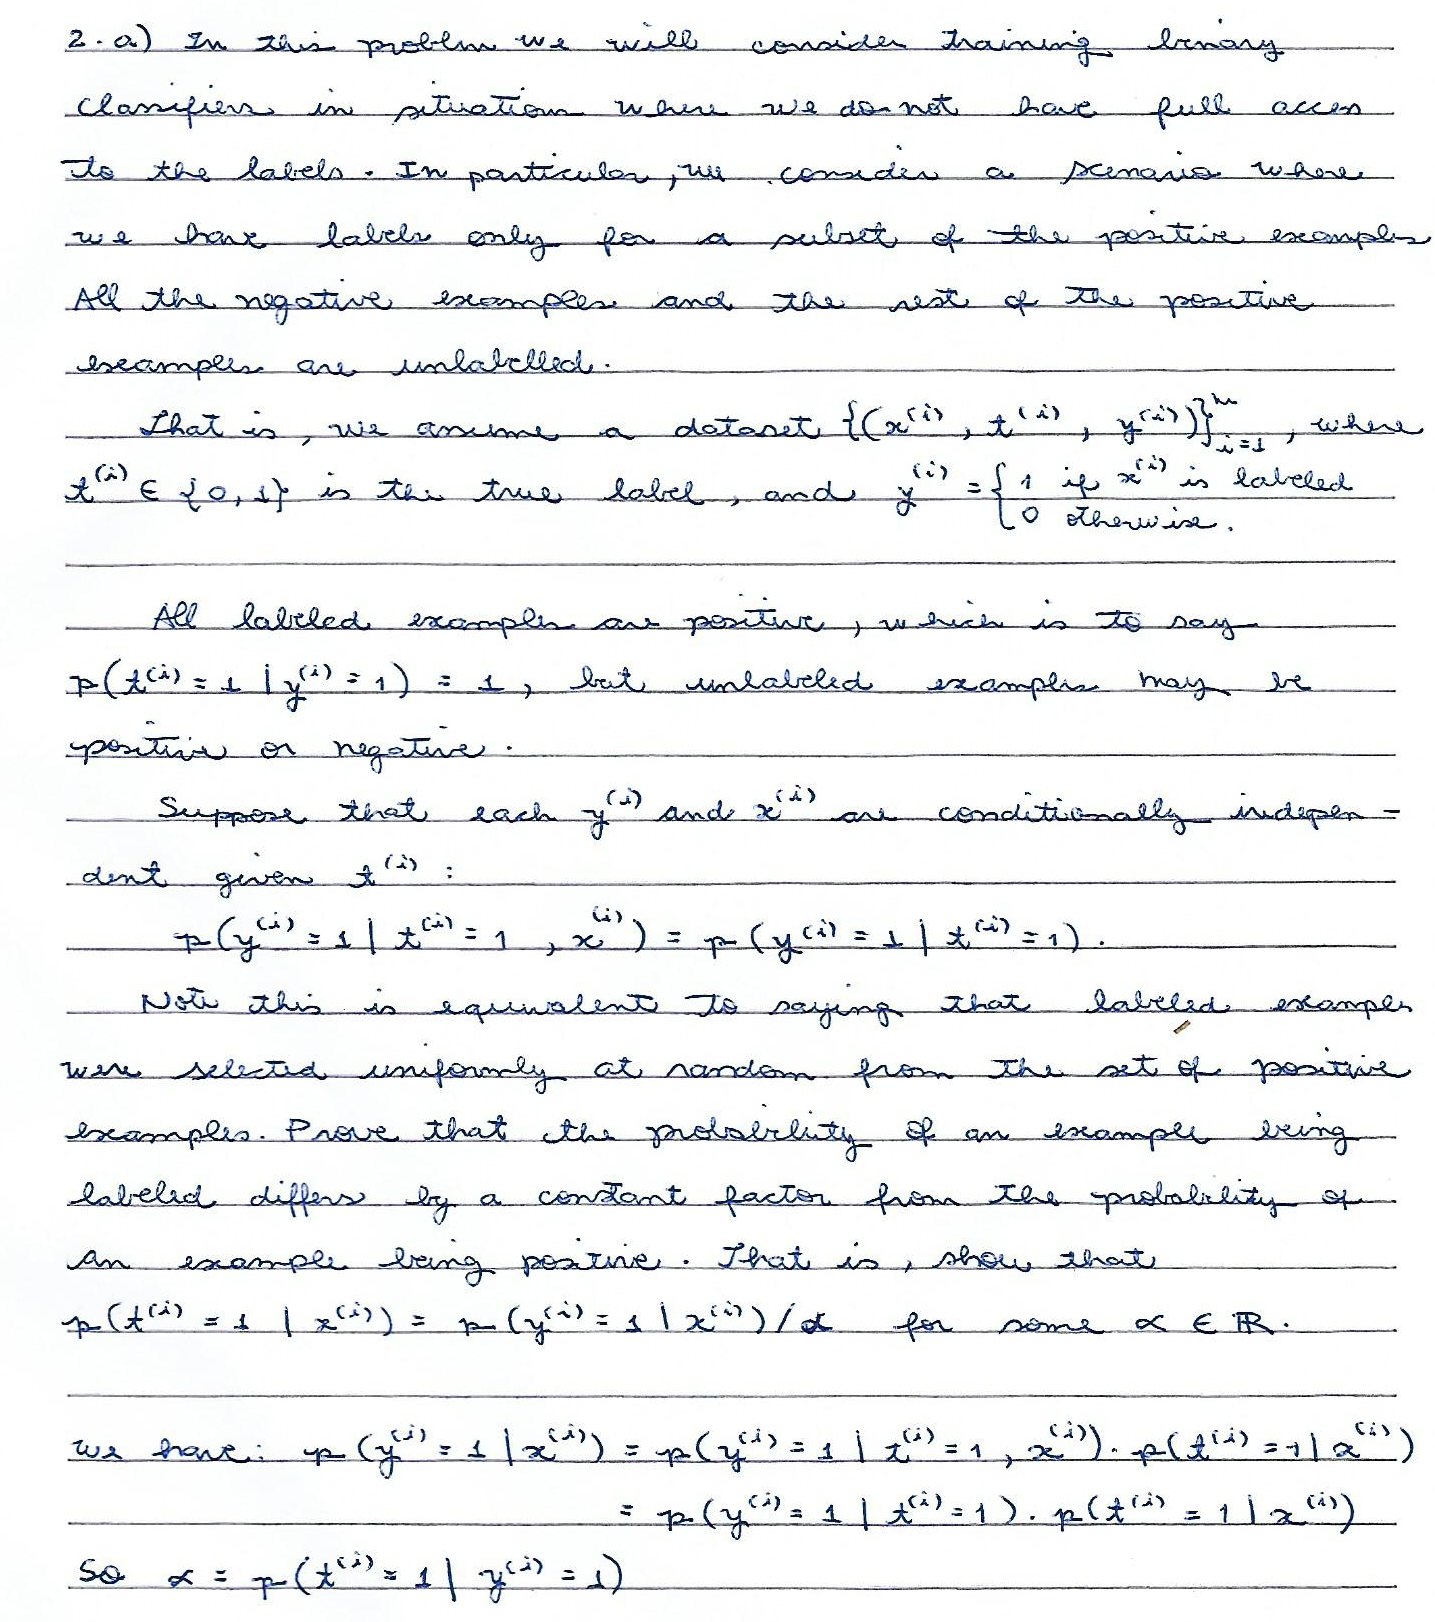 2. a) In this problem we will consider training binary
classifiers in situations where we do not have full access
to the labels. In particular, we consider a scenario where
we have labels only for a subset of the positive examples
All the negative examples and the rest of the positive
examples are unlabelled.
That is, we assume a dataset {(x^(i), t^(i), y^(i))}_{i=1}^m, where
t^(i) ∈ {0, 1} is the true label, and y^(i) = { 1 if x^(i) is labeled
0 otherwise.
All labeled examples are positive, which is to say
p(t^(i) = 1 | y^(i) = 1) = 1, but unlabeled examples may be
positive or negative.
Suppose that each y^(i) and x^(i) are conditionally indepen-
dent given t^(i) :
p(y^(i) = 1 | t^(i) = 1, x^(i)) = p(y^(i) = 1 | t^(i) = 1).
Note this is equivalent to saying that labeled examples
were selected uniformly at random from the set of positive
examples. Prove that the probability of an example being
labeled differs by a constant factor from the probability of
an example being positive. That is, show that
p(t^(i) = 1 | x^(i)) = p(y^(i) = 1 | x^(i)) / α for some α ∈ ℝ.
we have: p(y^(i) = 1 | x^(i)) = p(y^(i) = 1 | t^(i) = 1, x^(i)) . p(t^(i) = 1 | x^(i))
= p(y^(i) = 1 | t^(i) = 1) . p(t^(i) = 1 | x^(i))
So α = p(t^(i) = 1 | y^(i) = 1)